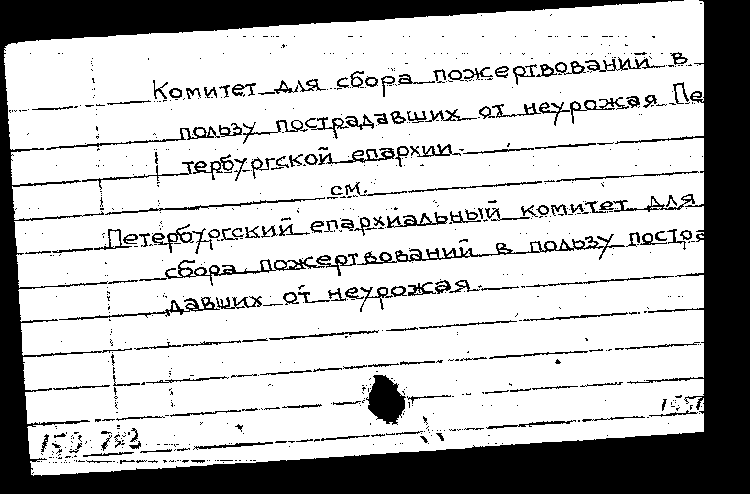 Комитет для сбора пожертвований в
пользу пострадавших от неурожая Пе
тербургской епархии.
см.
Петербургский епархиальный комитет для
сбора пожертвований в пользу постра
давших от неурожая.